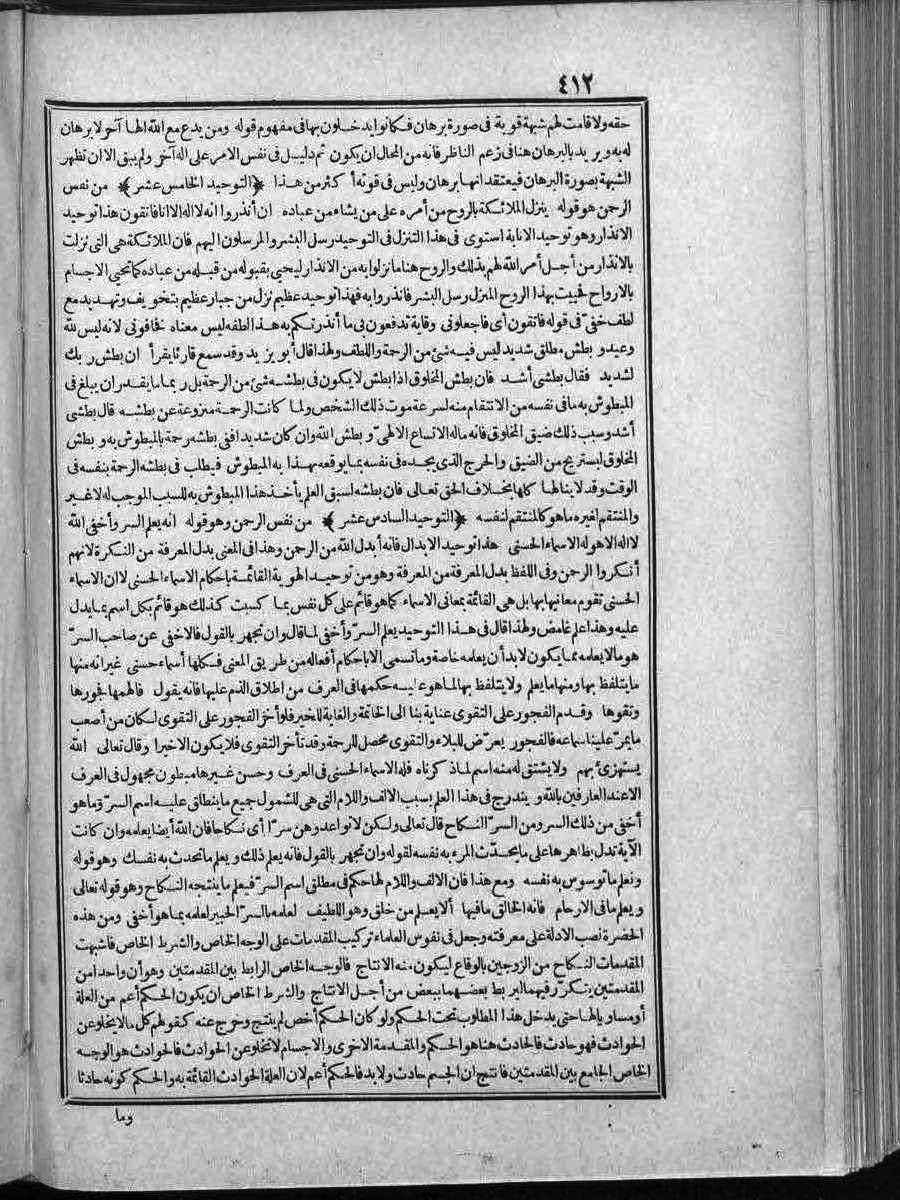 ٤١٢
حقه ولا قامت لهم شبهة قوية فى صورة برهان فكانوا يدخلون بها فى مفهوم قوله ومن يدع مع الله الها آخر لا برهان
له به ويريد بالبرهان هنا فى زعم الناظر فانه من المحال ان يكون ثم دليل فى نفس الامر على اله آخر ولم يبق الا ان تظهر
الشبهة بصورة البرهان فيعتقد انها برهان وليس فى قوته أكثر من هذا ﴿التوحيد الخامس عشر﴾ من نفس
الرحمن هو قوله ينزل الملائكة بالروح من أمره على من يشاء من عباده ان أنذروا انه لا اله الا انا فاتقون هذا توحيد
الانذار وهو توحيد الانابة استوى فى هذا التنزل فى التوحيد رسل البشر والمرسلون اليهم فان الملائكة هى التى نزلت
بالانذار من أجل أمر الله لهم بذلك والروح هنا ما نزلوا به من الانذار ليحيى بقبوله من قبله من عباده كما تحيى الاجسام
بالارواح فحييت بهذا الروح المنزل رسل البشر فانذروا به فهذا توحيد عظيم نزل من جبار عظيم بتخويف وتهديد مع
لطف خفىّ فى قوله فاتقون أى فاجعلونى وقاية تدفعون بى ما أنذرتكم به هذا لطفه ليس معناه خافونى لانه ليس لله
وعيد وبطش مطلق شديد ليس فيه شئ من الرحمة واللطف ولهذا قال أبو يزيد وقد سمع قارئا يقرأ ان بطش ربك
لشديد فقال بطشى أشد فان بطش المخلوق اذا بطش لا يكون فى بطشه شئ من الرحمة بل ربما ما يقدر ان يبلغ فى
المبطوش به ما فى نفسه من الانتقام منه لسرعة موت ذلك الشخص ولما كانت الرحمة منزوعة عن بطشه قال بطشى
أشد وسبب ذلك ضيق المخلوق فانه ماله الاتساع الالهىّ وبطش الله وان كان شديدا ففى بطشه رحمة بالمبطوش به وبطش
المخلوق ليستريح من الضيق والحرج الذى يجده فى نفسه بما يوقعه بهذا به المبطوش فيطلب فى بطشه الرحمة بنفسه فى
الوقت وقد لا ينالها كلها بخلاف الحق تعالى فان بطشه لسبق العلم يأخذ هذا المبطوش به للسبب الموجب له لا غير
والمنتقم لغيره ما هو كالمنتقم لنفسه ﴿التوحيد السادس عشر﴾ من نفس الرحمن وهو قوله انه يعلم السر وأخفى الله
لا اله الا هو له الاسماء الحسنى هذا توحيد الابدال فانه أبدل الله من الرحمن وهذا فى المعنى بدل المعرفة من النكرة لانهم
أنكروا الرحمن وفى اللفظ بدل المعرفة من المعرفة وهو من توحيد الهوية القائمة باحكام الاسماء الحسنى لا ان الاسماء
الحسنى تقوم معانيها بها بل هى القائمة بمعانى الاسماء كما هو قائم على كل نفس بما كسبت كذلك هو قائم بكل اسم بما يدل
عليه وهذا علم غامض ولهذا قال فى هذا التوحيد يعلم السرّ وأخفى لما قال وان تجهر بالقول فالاخفى عن صاحب السرّ
هو ما لا يعلمه مما يكون لا بد أن يعلمه خاصة وما تسمى الا باحكام أفعاله من طريق المعنى فكلها أسماء حسنى غير انه منها
ما يتلفظ بها ومنها ما يعلم ولا يتلفظ بها لما هو عليه حكمها فى العرف من اطلاق الذم عليها فانه يقول فالهمها فجورها
وتقوها وقدم الفجور على التقوى عناية بنا الى الخاتمة والغاية للخير فلو أخر الفجور على التقوى لكان من أصعب
ما يمرّ علينا سماعه فالفجور يعرّض للبلاء والتقوى محصل للرحمة وقد تأخر التقوى فلا يكون الا خيرا وقال تعالى الله
يستهزئ بهم ولا يشتق له منه اسم لما ذكرناه فله الاسماء الحسنى فى العرف وحسن غيرها مبطون مجهول فى العرف
الا عند العارفين بالله ويندرج فى هذا العلم بسبب الالف واللام التى هى للشمول جميع ما ينطلق عليه اسم السرّ وما هو
أخفى من ذلك السر ومن السرّ النكاح قال تعالى ولكن لا تواعدوهن سرّا أى نكاحا فان الله أيضا يعلمه وان كانت
الآية تدل بظاهرها على ما يحدّث المرء به نفسه لقوله وان تجهر بالقول فانه يعلم ذلك ويعلم ما تحدث به نفسك وهو قوله
ونعلم ما توسوس به نفسه ومع هذا فان الالف واللام لها حكم فى مطلق اسم السرّ فيعلم ما ينتجه النكاح وهو قوله تعالى
ويعلم ما فى الارحام فانه الخالق ما فيها ألا يعلم من خلق وهو اللطيف لعلمه بالسرّ الخبير لعلمه بما هو أخفى ومن هذه
الحضرة نصب الادلة على معرفته وجعل فى نفوس العلماء تركيب المقدمات على الوجه الخاص والشرط الخاص فاشبهت
المقدمات النكاح من الزوجين بالوقاع ليكون منه الانتاج فالوجه الخاص الرابط بين المقدمتين وهو أن واحدا من
المقدمتين يتكرّر فيهما ليربط بعضهما ببعض من أجل الانتاج والشرط الخاص ان يكون الحكم أعم من العلة
أو مساويا لها حتى يدخل هذا المطلوب تحت الحكم ولو كان الحكم أخص لم ينتج وخرج عنه كقولهم كل ما لا يخلو عن
الحوادث فهو حادث فالحادث هنا هو الحكم والمقدمة الاخرى والاجسام لا تخلو عن الحوادث فالحوادث هو الوجه
الخاص الجامع بين المقدمتين فانتج ان الجسم حادث ولا بد فالحكم أعم لان العلة الحوادث القائمة به والحكم كونه حادثا
وما